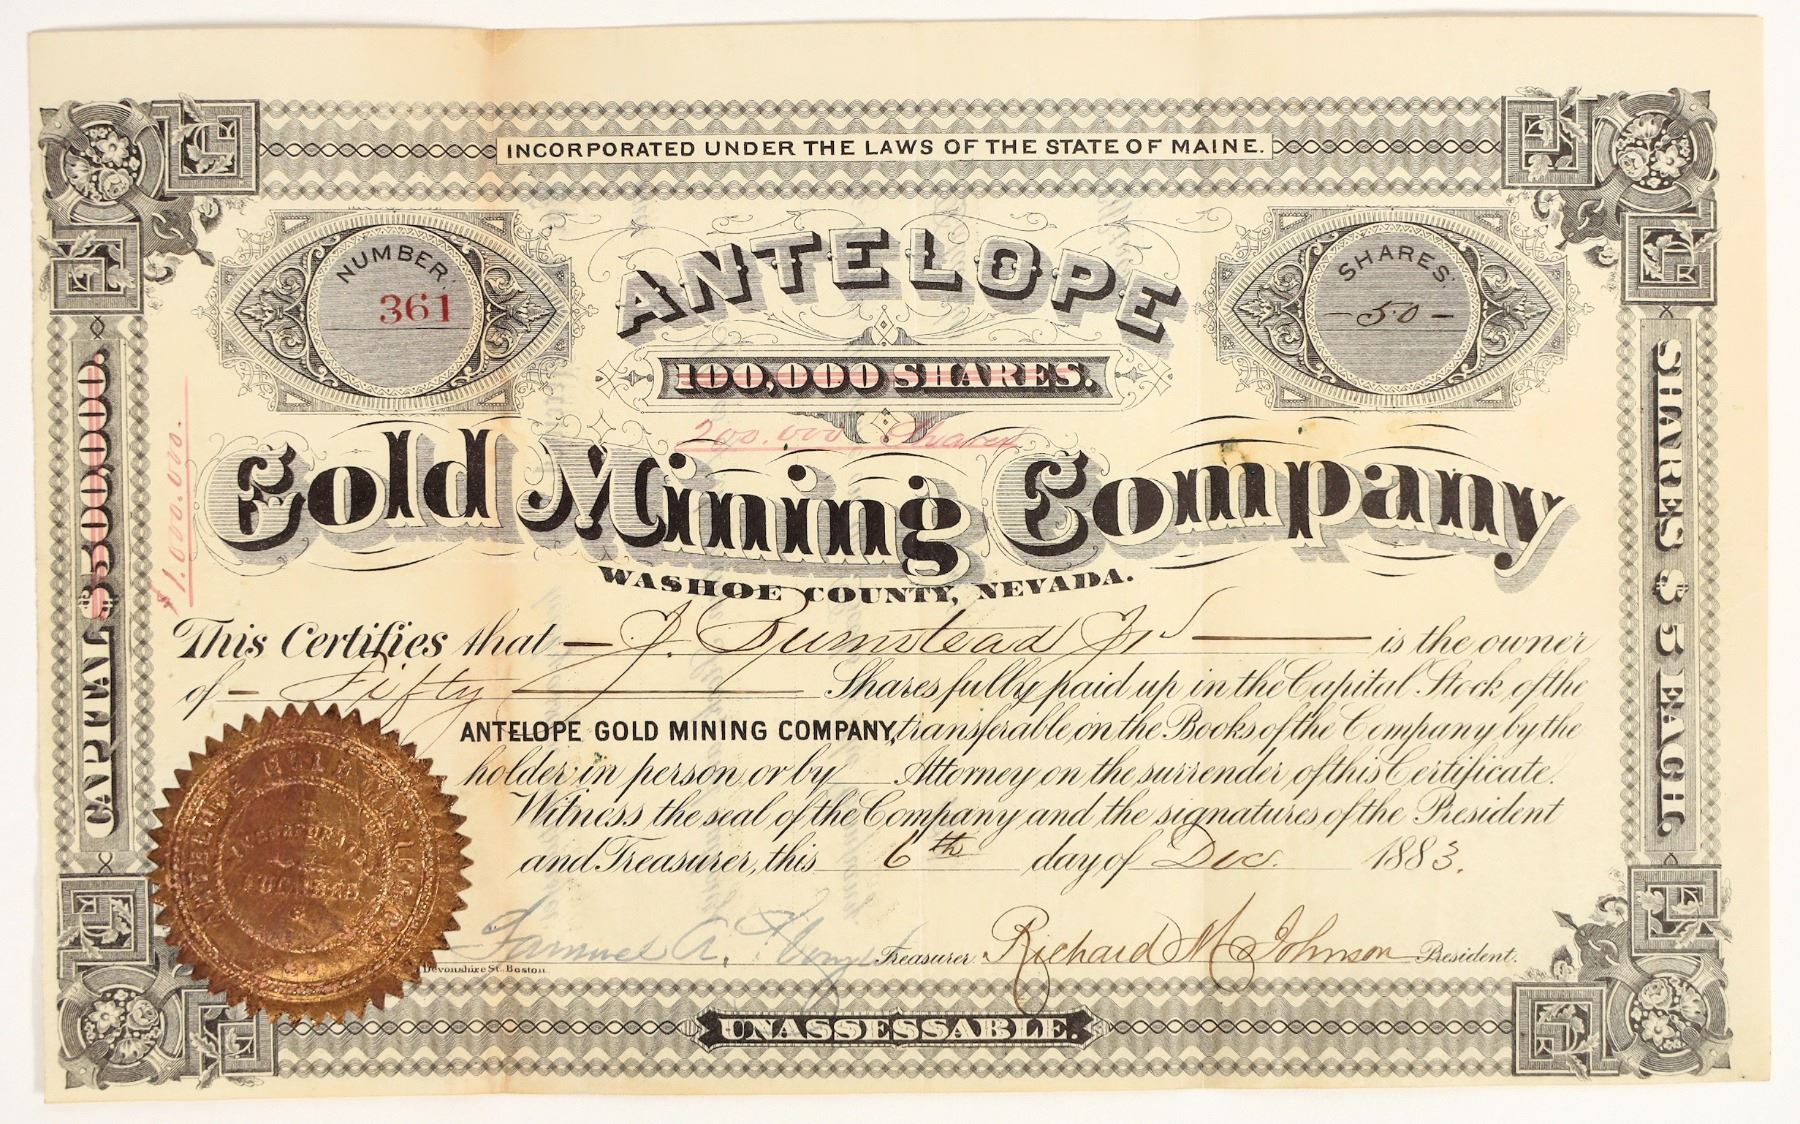 INCORPORATED UNDER THE LAWS OF THE STATE OF MAINE.
NUMBER.
361
ANTELOPE
SHARES.
50
100,000 SHARES.
200.000 Shares
Gold Mining Company
WASHOE COUNTY, NEVADA.
CAPITAL $500,000.
$1.000.000.
SHARES $5 EACH.
This Certifies that J. Bumstead Jr is the owner
of Fifty Shares fully paid up in the Capital Stock of the
ANTELOPE GOLD MINING COMPANY, transferable on the Books of the Company by the
holder in person or by Attorney on the surrender of this Certificate.
Witness the seal of the Company and the signatures of the President
and Treasurer, this 6th day of Dec. 1883.
Samuel A. Treasurer Richard M Johnson President.
Devonshire St. Boston.
UNASSESSABLE.